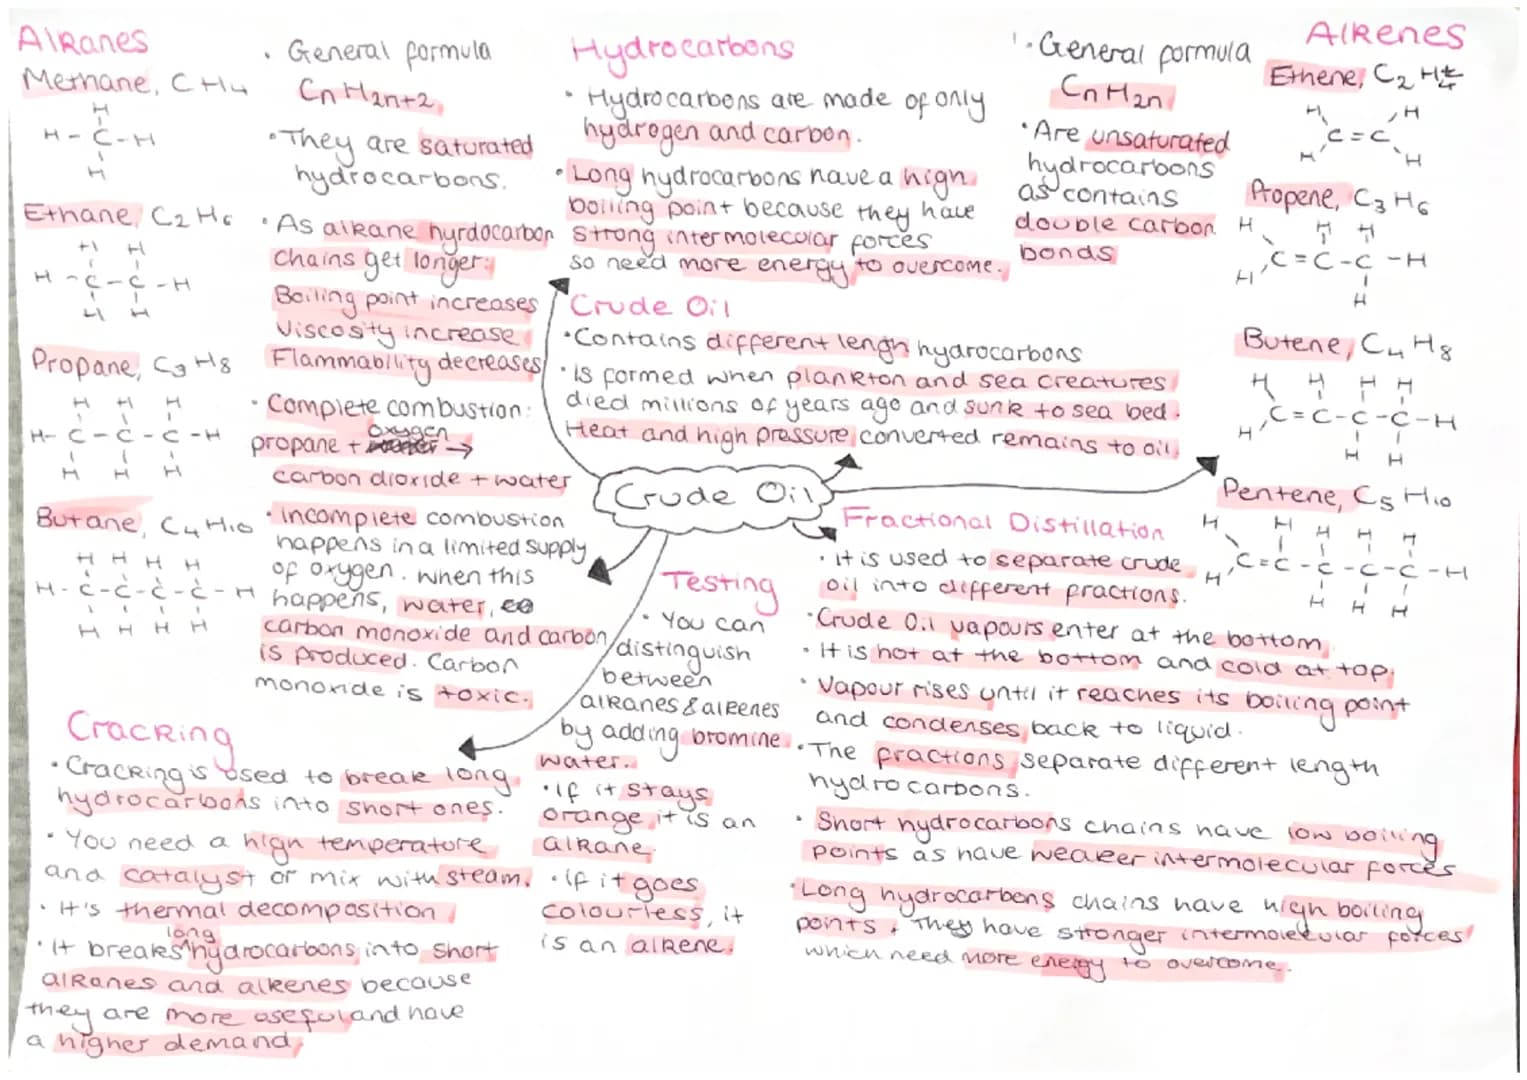 Alkanes
Methane, CH4
H
H - C - H
H
Ethane, C2H6
H H
H - C - C - H
H H
Propane, C3H8
H H H
H - C - C - C - H
H H H
Butane, C4H10
H H H H
H - C - C - C - C - H
H H H H
• General formula
CnH2n+2
• They are saturated
hydrocarbons.
• As alkane hyrdocarbon
chains get longer:
Boiling point increases
Viscosity increase
Flammability decreases
• Complete combustion:
oxygen
propane + →
carbon dioxide + water
• Incomplete combustion
happens in a limited supply
of oxygen. When this
happens, water,
carbon monoxide and carbon
is produced. Carbon
monoxide is toxic.
Hydrocarbons
• Hydrocarbons are made of only
hydrogen and carbon.
• Long hydrocarbons have a high
boiling point because they have
strong intermolecular forces
so need more energy to overcome.
Crude Oil
• Contains different lengh hydrocarbons
• Is formed when plankton and sea creatures
died millions of years ago and sunk to sea bed.
Heat and high pressure converted remains to oil.
Crude Oil
• General formula
CnH2n
• Are unsaturated
hydrocarbons
as contains
double carbon
bonds
Alkenes
Ethene, C2H4
H H
C = C
H H
Propene, C3H6
H H H
C = C - C - H
H H
Butene, C4H8
H H H H
C = C - C - C - H
H H H
Pentene, C5H10
H H H H H
C = C - C - C - C - H
H H H H
Fractional Distillation
• It is used to separate crude
oil into different fractions.
• Crude Oil vapours enter at the bottom.
• It is hot at the bottom and cold at top.
• Vapour rises until it reaches its boiling point
and condenses back to liquid.
• The fractions separate different length
hydrocarbons.
• Short hydrocarbons chains have low boiling
points as have weaker intermolecular forces
• Long hydrocarbons chains have high boiling
points. They have stronger intermolecular forces
which need more energy to overcome.
Testing
• You can
distinguish
between
alkanes & alkenes
by adding bromine
water.
• If it stays
orange, it is an
alkane.
• If it goes
colourless, it
is an alkene.
Cracking
• Cracking is used to break long
hydrocarbons into short ones.
• You need a high temperature
and catalyst or mix with steam.
• It's thermal decomposition
long
• It breaks ^ hydrocarbons into short
alkanes and alkenes because
they are more useful and have
a higher demand.